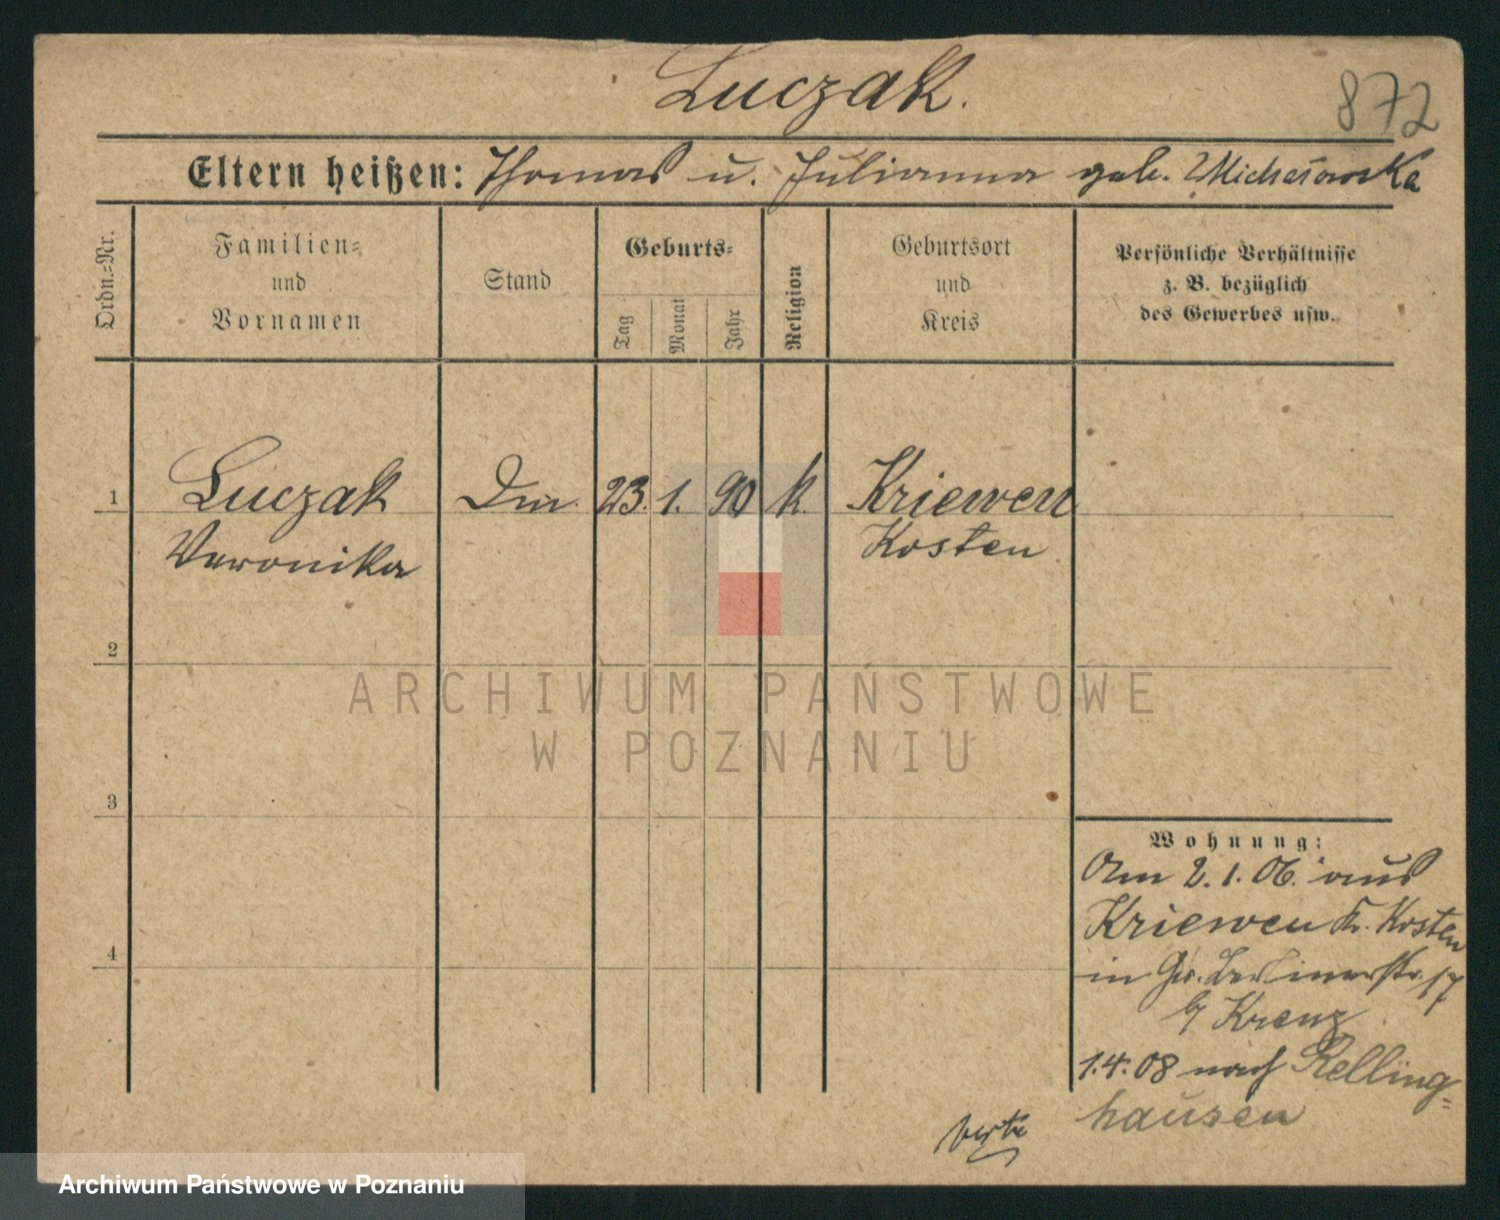 Luczak.
872
Eltern heißen: Thomas u. Julianna geb. Michałowska
Ordn.=Nr.
Familien=
und
Vornamen
Stand
Geburts=
Tag
Monat
Jahr
Religion
Geburtsort
und
Kreis
Persönliche Verhältnisse
z. B. bezüglich
des Gewerbes usw.
1
Luczak
Veronika
23. 1. 90
k.
Kriewen
Kosten
2
3
4
ARCHIWUM PAŃSTWOWE
W POZNANIU
Wohnung:
Am 2.1.06. aus
Kriewen Kr. Kosten
in Gr. Berlinerstr. 17
b/ Krenz
1.4.08 nach Relling=
hausen
Archiwum Państwowe w Poznaniu